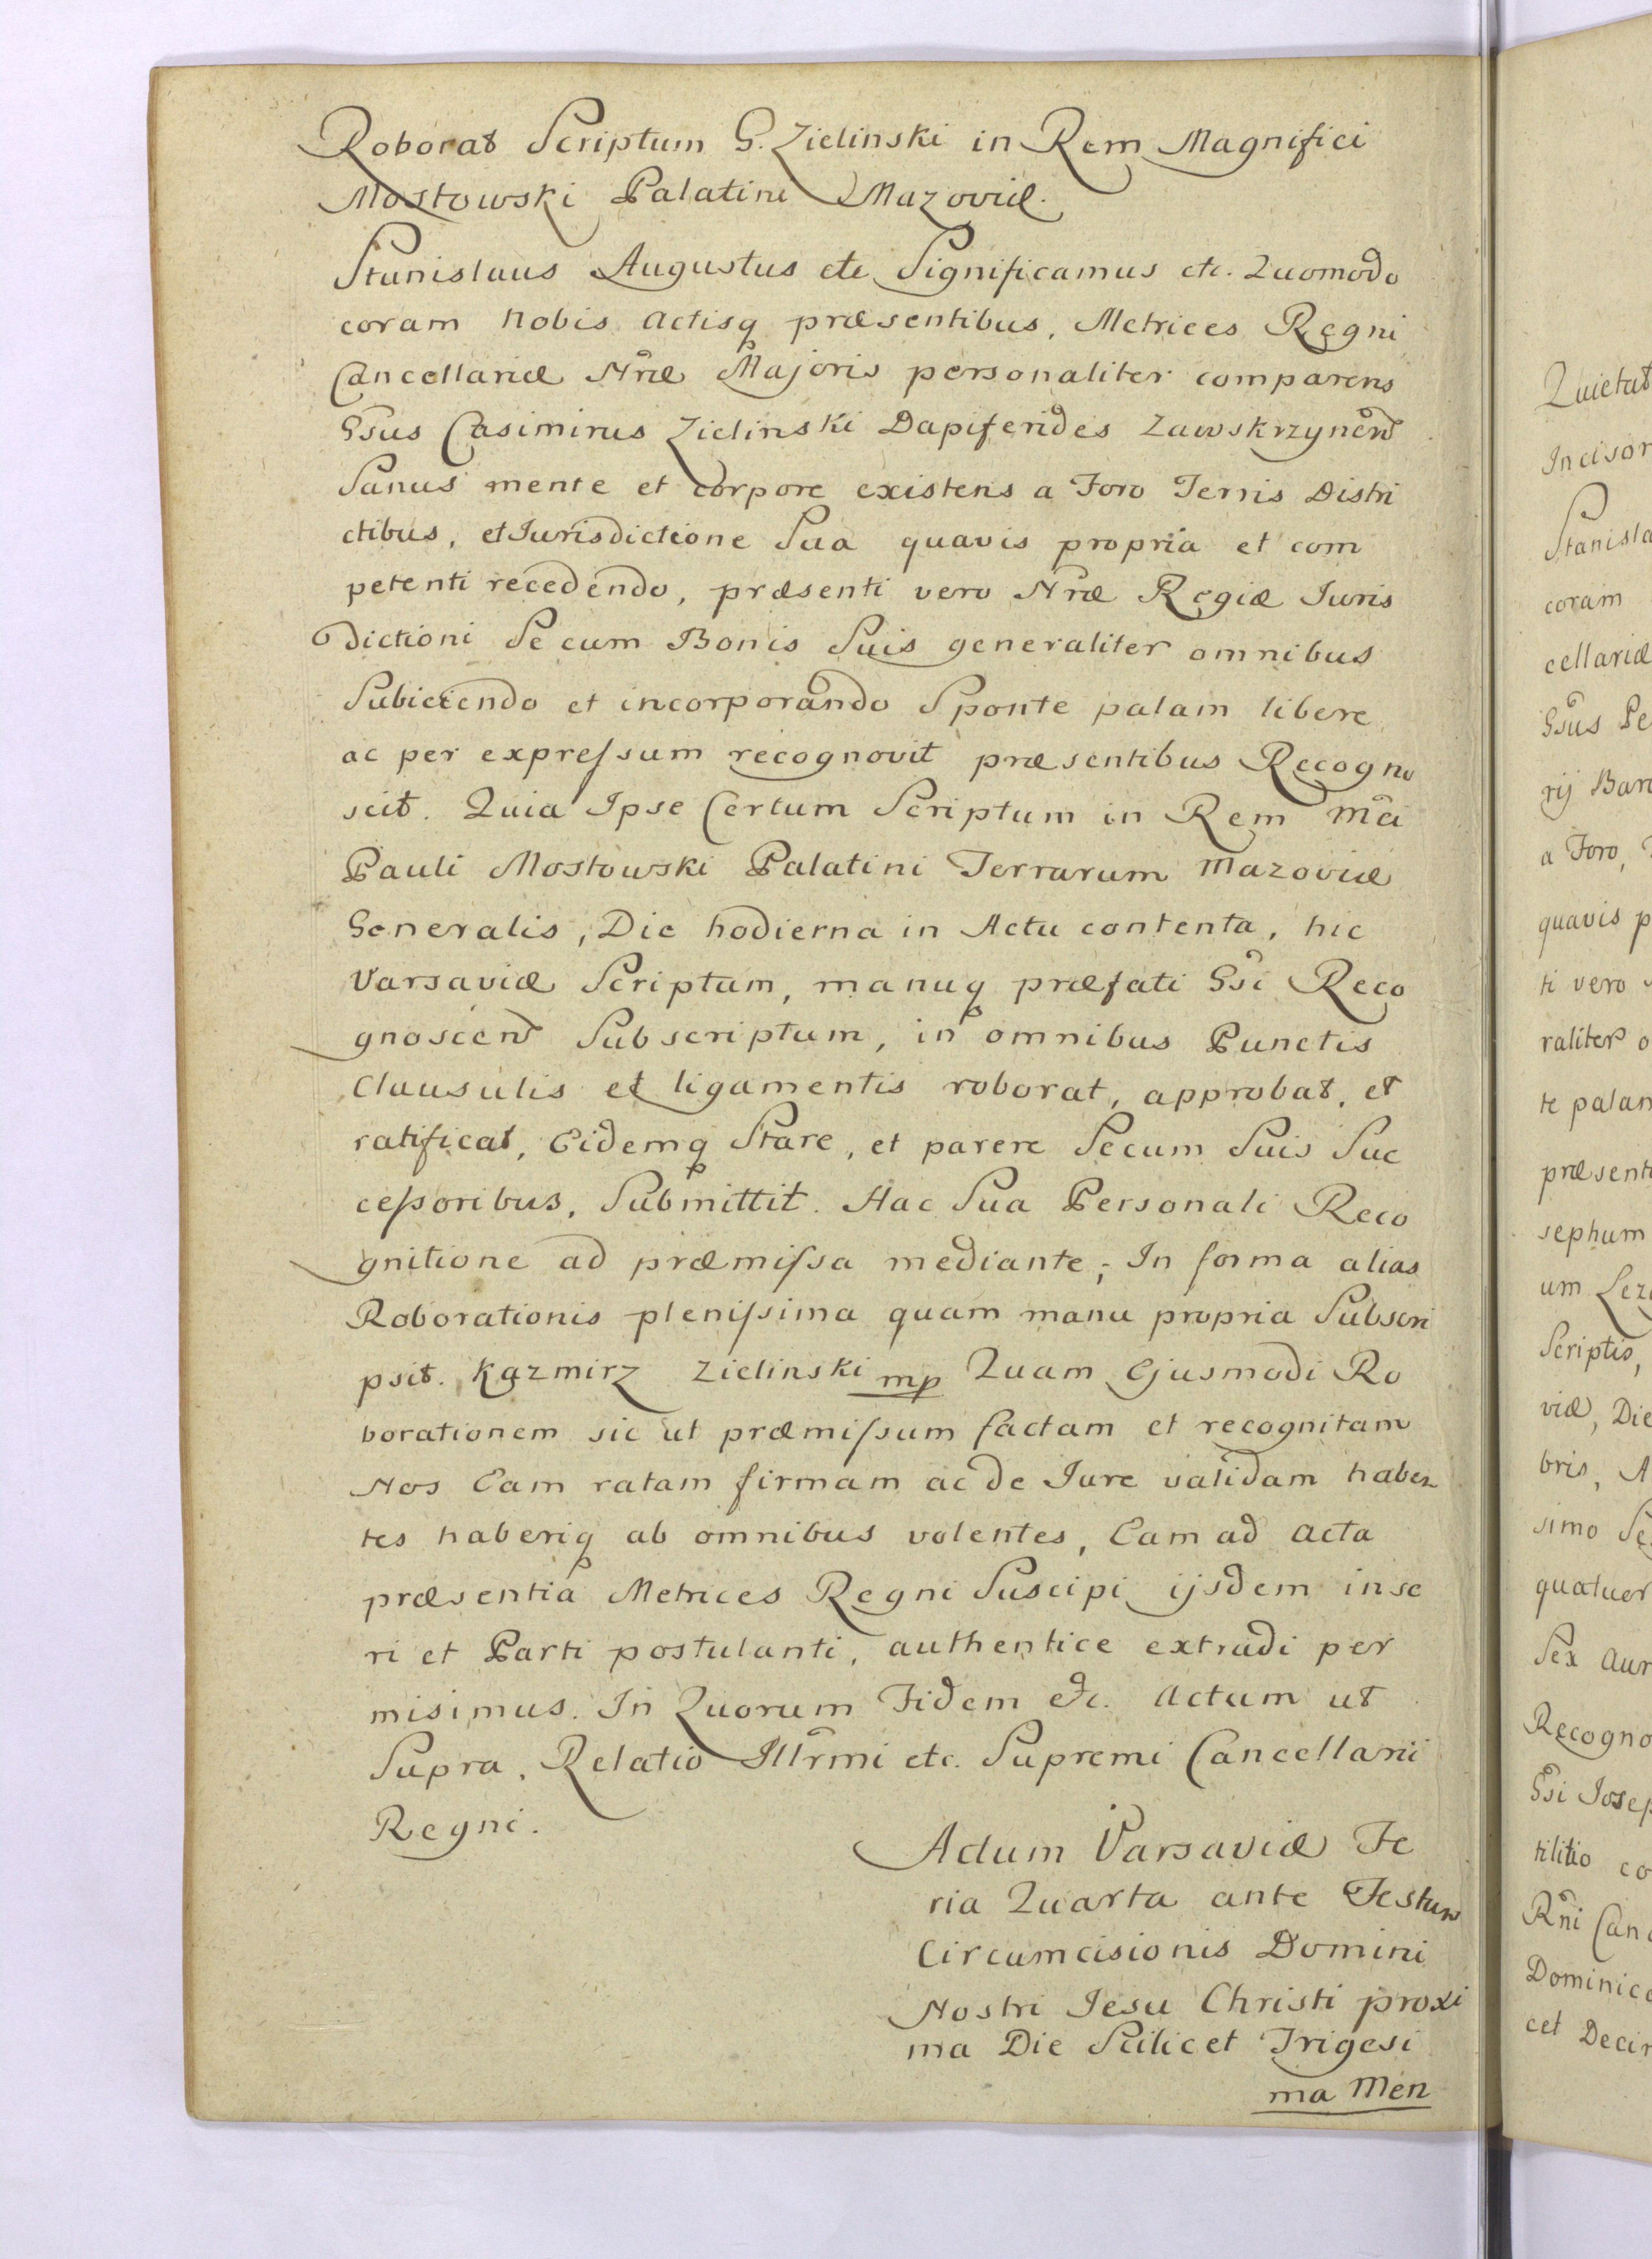 Roborat Scriptum G. Zielinski in Rem Magnifici
Mostowski Palatini Mazoviæ.
Stanislaus Augustus etc Significamus etc. Quomodo
coram Nobis Actisq præsentibus, Metrices Regni
Cancellariæ Nræ Majoris personaliter comparens
Gsus Casimirus Zielinski Dapiferides Zawskrzynen
Sanus mente et corpore existens a Foro Terris Distri
ctibus, et Jurisdictione Sua quavis propria et com
petenti recedendo, præsenti vero Nræ Regiæ Juris
dictioni Se cum Bonis Suis generaliter omnibus
Subiiciendo et incorporando Sponte palam libere
ac per expreſsum recognovit præsentibus Recogno
scit. Quia Ipse Certum Scriptum in Rem Mci
Pauli Mostowski Palatini Terrarum Mazoviæ
Generalis, Die hodierna in Actu contenta, hic
Varsaviæ Scriptum, manuq præfati Gsi Reco
gnoscen Subscriptum, in omnibus Punctis
Clausulis et ligamentis roborat, approbat, et
ratificat, Eidemq Stare, et parere Secum Suis Suc
ceſsoribus, Submittit. Hac Sua Personali Reco
gnitione ad præmiſsa mediante; In forma alias
Roborationis pleniſsima quam manu propria Subscri
psit. Kazmirz Zielinski mp Quam Ejusmodi Ro
borationem sic ut præmiſsum factam et recognitam
Nos Eam ratam firmam ac de Jure validam haben
tes haberiq ab omnibus volentes, Eam ad Acta
præsentia Metrices Regni Suscipi ijsdem inse
ri et Parti postulanti, authentice extradi per
misimus. In Quorum Fidem etc. Actum ut
Supra. Relatio Illrmi etc. Supremi Cancellarii
Regni.
Actum Varsaviæ Fe
ria Quarta ante Festum
Circumcisionis Domini
Nostri Jesu Christi proxi
ma Die Scilicet Trigesi
ma Men
Quietat
Incisor
Stanisla
coram
cellariæ
Gsus Pe
rij Bar
a Foro,
quavis p
ti vero
raliter o
te palam
præsenti
sephum
um Lez
Scriptis,
viæ, Die
bris, A
simo Se
quatuor
Sex Aur
Recogno
Gsi Josep
tilitio co
Rni Canc
Dominica
cet Decim